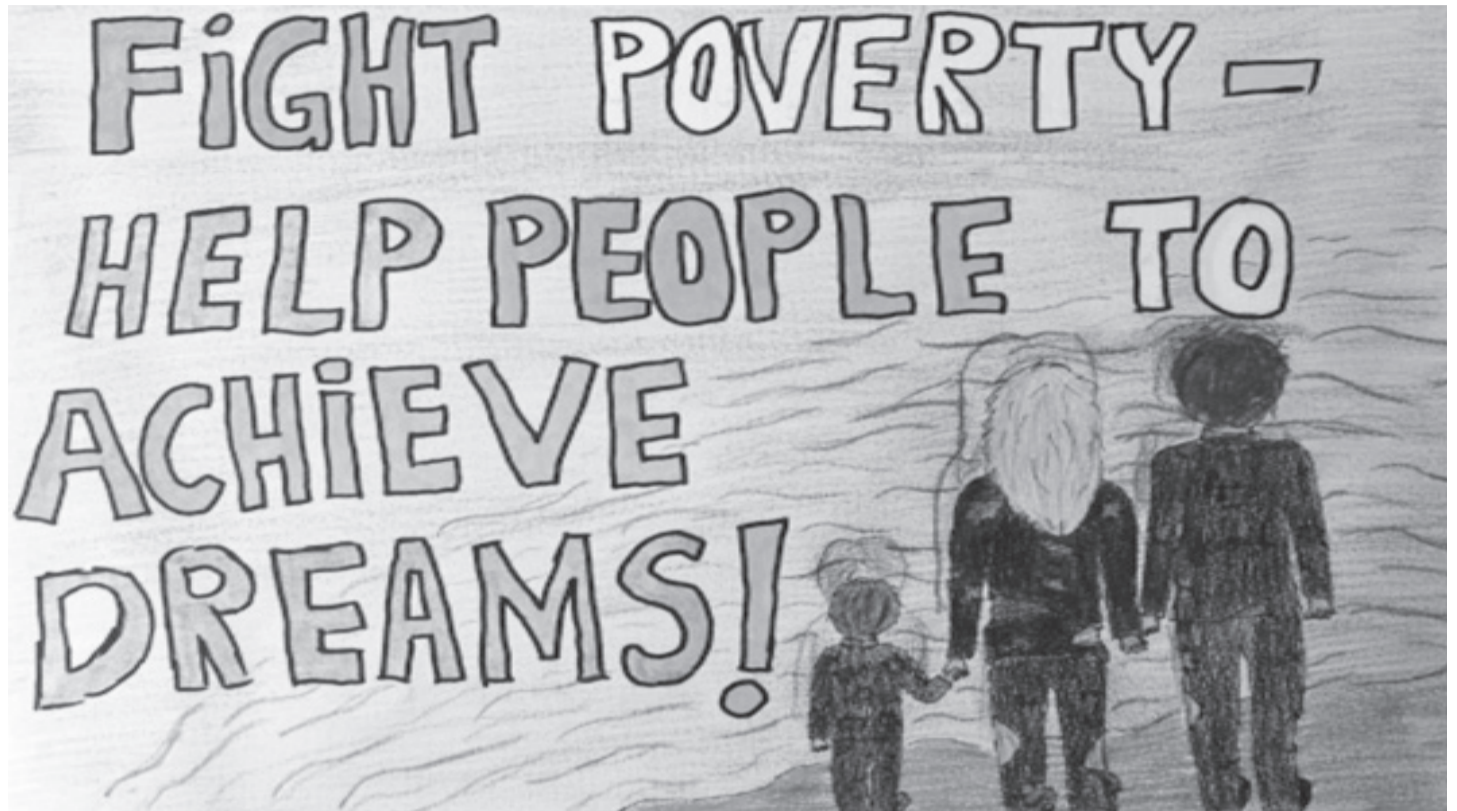 FiGHT POVERTY –
HELP PEOPLE TO
ACHiEVE
DREAMS!